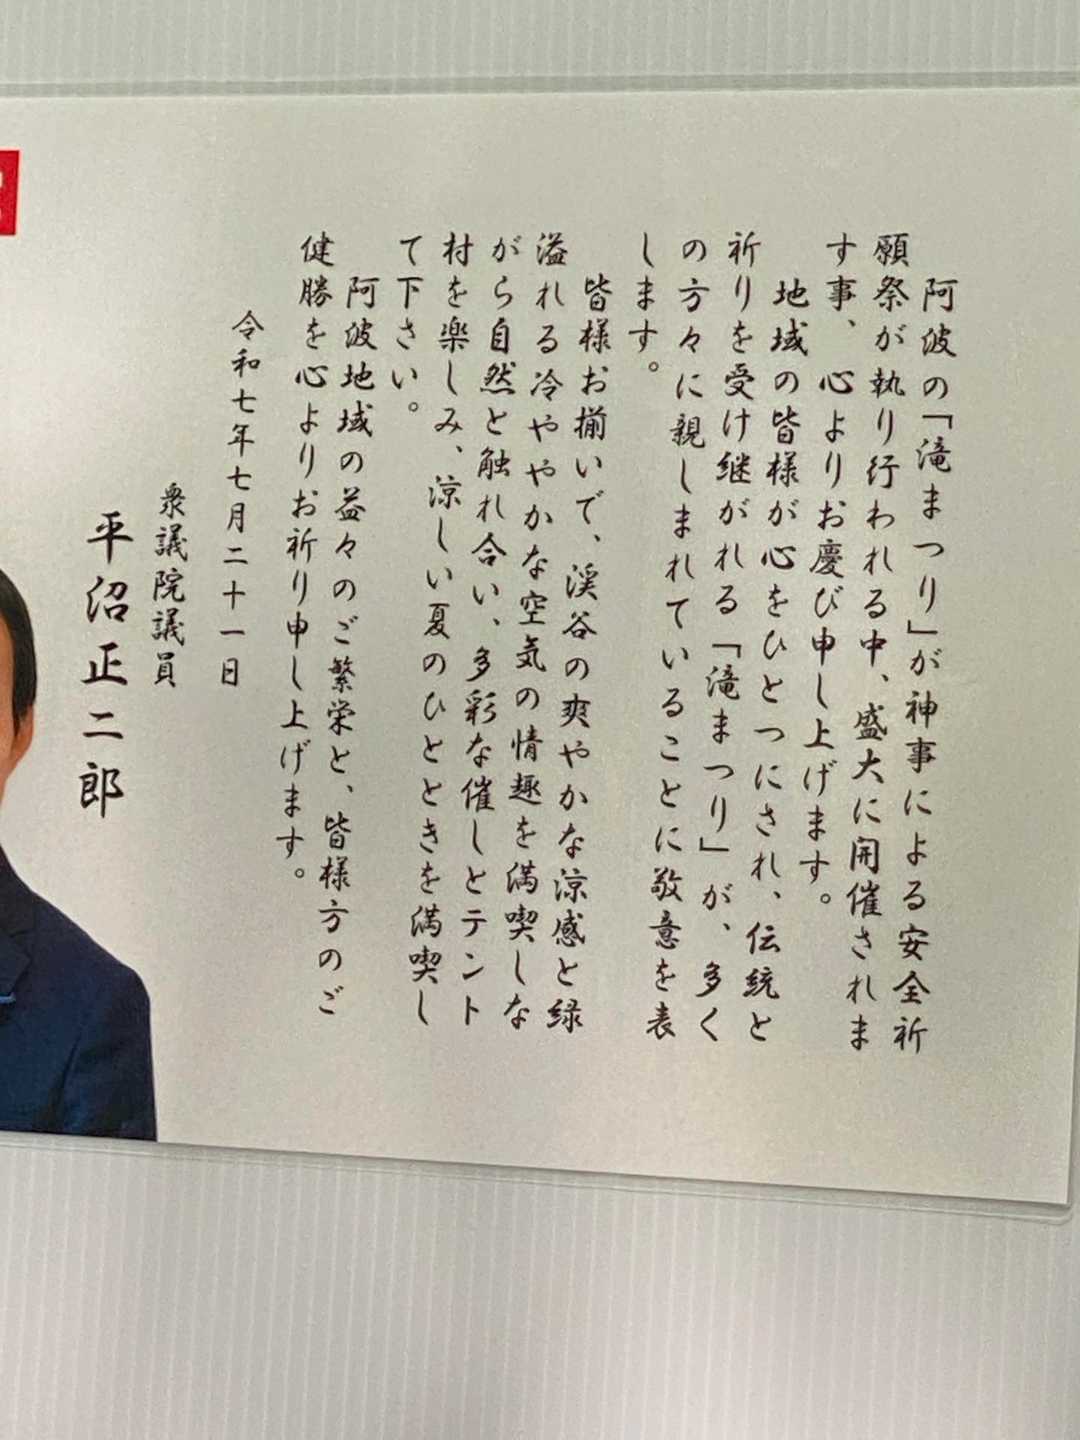 阿波の「滝まつり」が神事による安全祈
願祭が執り行われる中、盛大に開催されま
す事、心よりお慶び申し上げます。
地域の皆様が心をひとつにされ、伝統と
祈りを受け継がれる「滝まつり」が、多く
の方々に親しまれていることに敬意を表
します。
皆様お揃いで、渓谷の爽やかな涼感と緑
溢れる冷ややかな空気の情趣を満喫しな
がら自然と触れ合い、多彩な催しとテント
村を楽しみ、涼しい夏のひとときを満喫し
て下さい。
阿波地域の益々のご繁栄と、皆様方のご
健勝を心よりお祈り申し上げます。
令和七年七月二十一日
衆議院議員
平沼正二郎